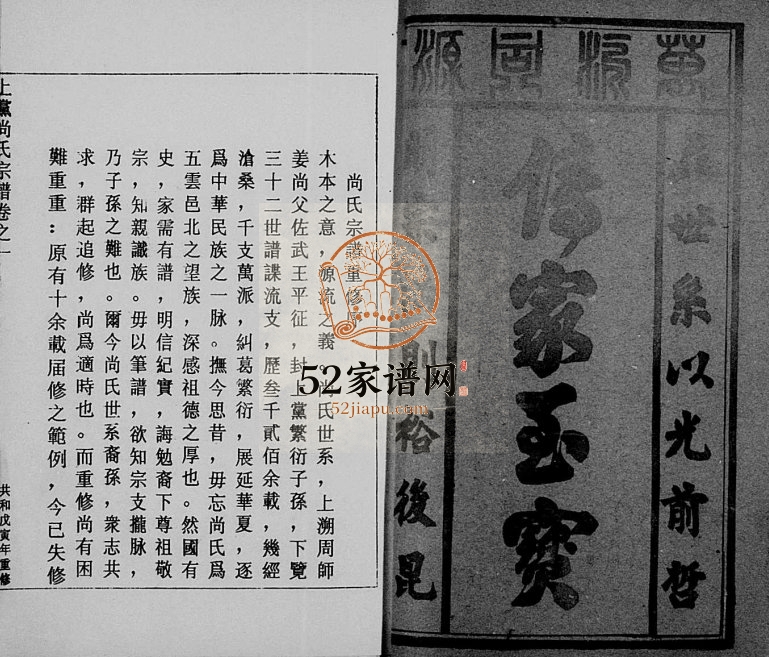 萬派同源
世系以光前哲
傳家至寶
則裕後昆
尚氏宗譜重修
木本之意，源流之義。尚氏世系，上溯周師
姜尚父佐武王平征，封上黨繁衍子孫，下覽
三十二世譜諜流支，歷叁千貳佰余載，幾經
滄桑，千支萬派，糾葛繁衍，展延華夏，逐
爲中華民族之一脉。撫今思昔，毋忘尚氏爲
五雲邑北之望族，深感祖德之厚也。然國有
史，家需有譜，明信紀實，誨勉裔下尊祖敬
宗，知親識族。毋以筆譜，欲知宗支攏脉，
乃子孫之難也。爾今尚氏世系裔孫，衆志共
求，群起追修，尚爲適時也。而重修尚有困
難重重：原有十余載届修之範例，今已失修
上黨尚氏宗譜卷之一
共和戊寅年重修
52家谱网
52jiapu.com